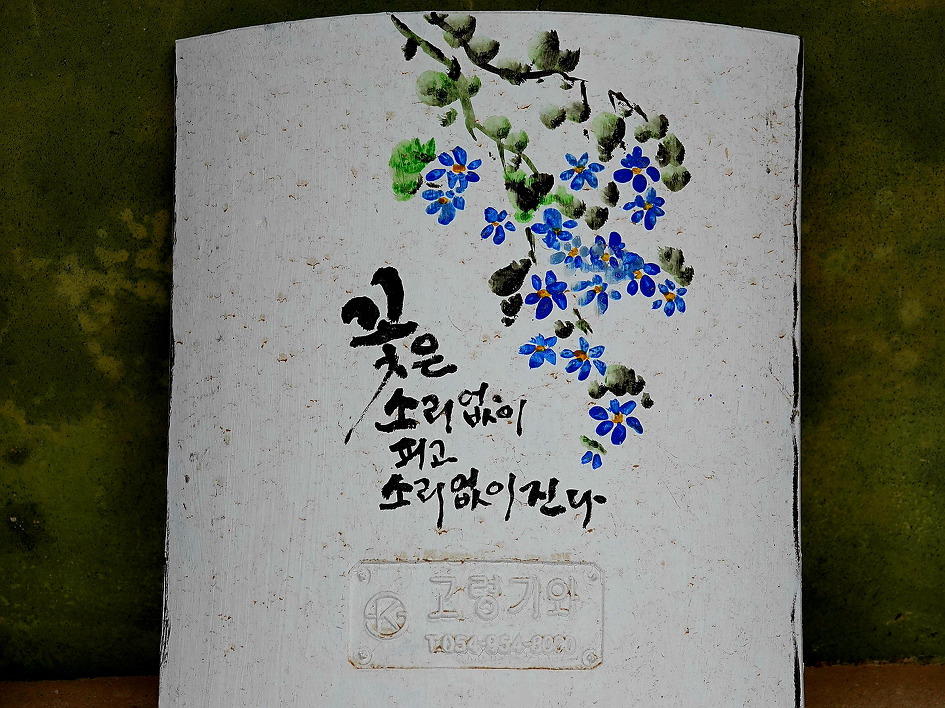 꽃은
소리없이
피고
소리없이 진다.
고령기와
K
T.054-954-8080